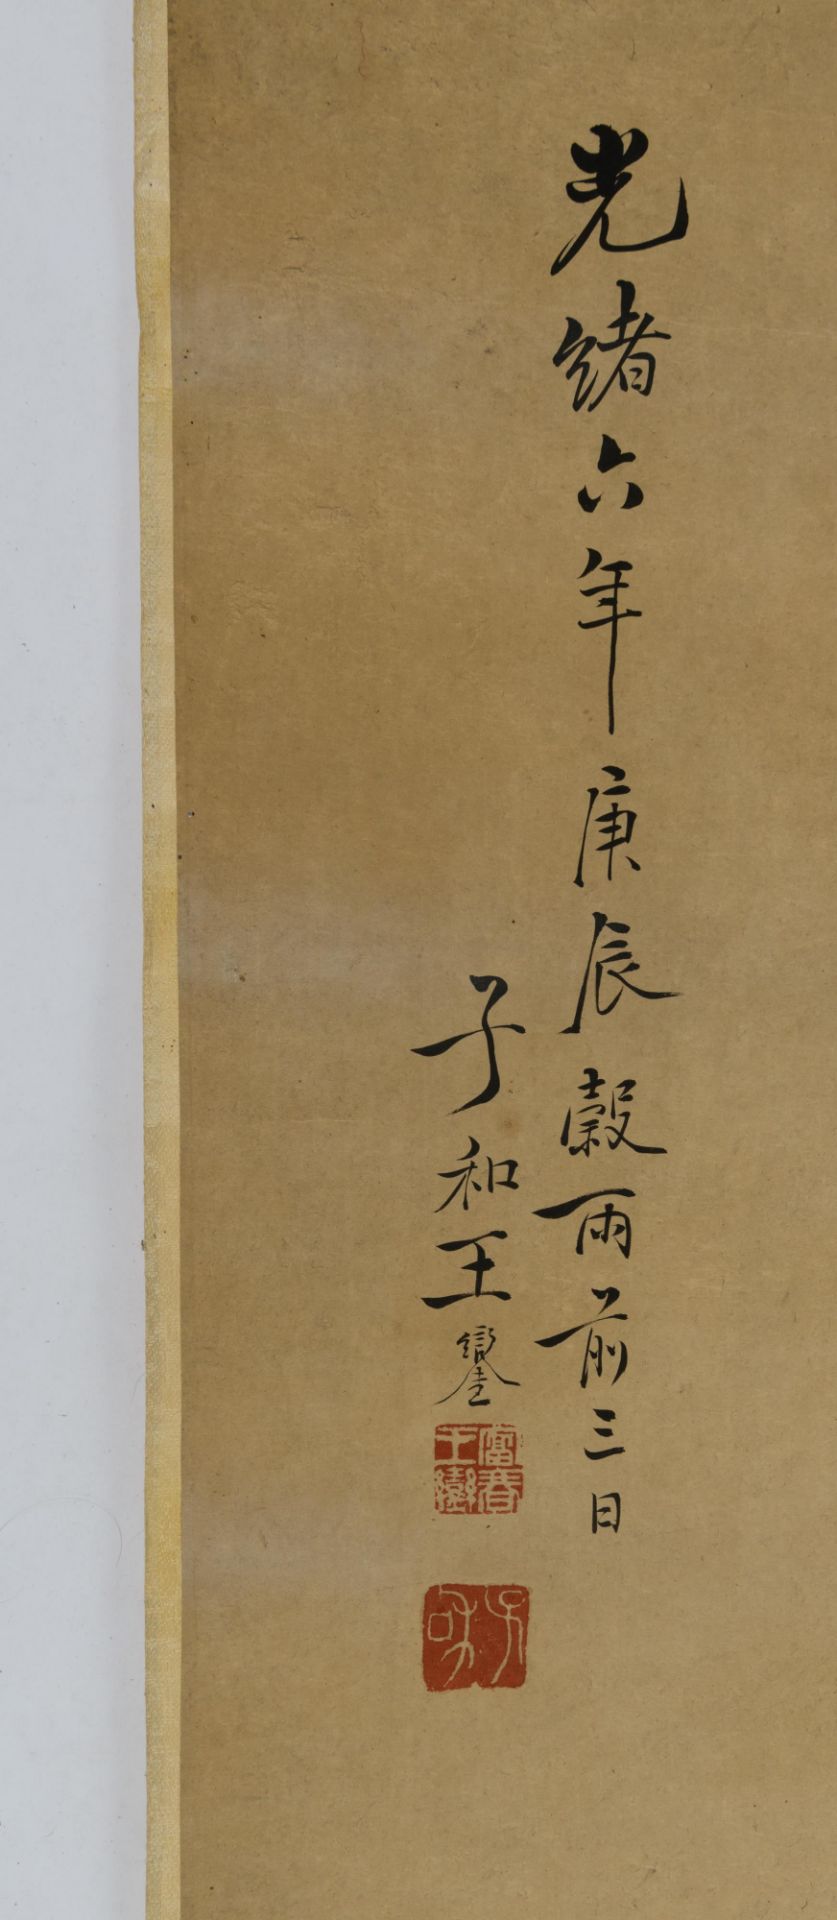 光緒六年庚辰穀雨前三日
子和王鑾
富春
王鑾
子和